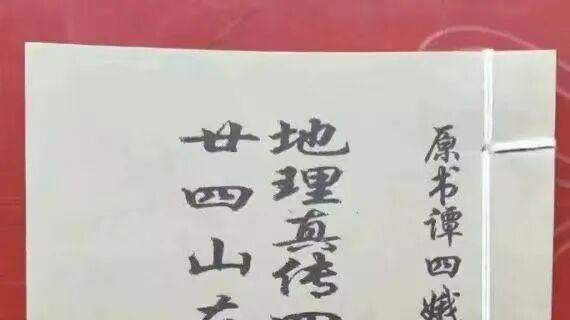 原书谭四娥
地理真传四
廿四山